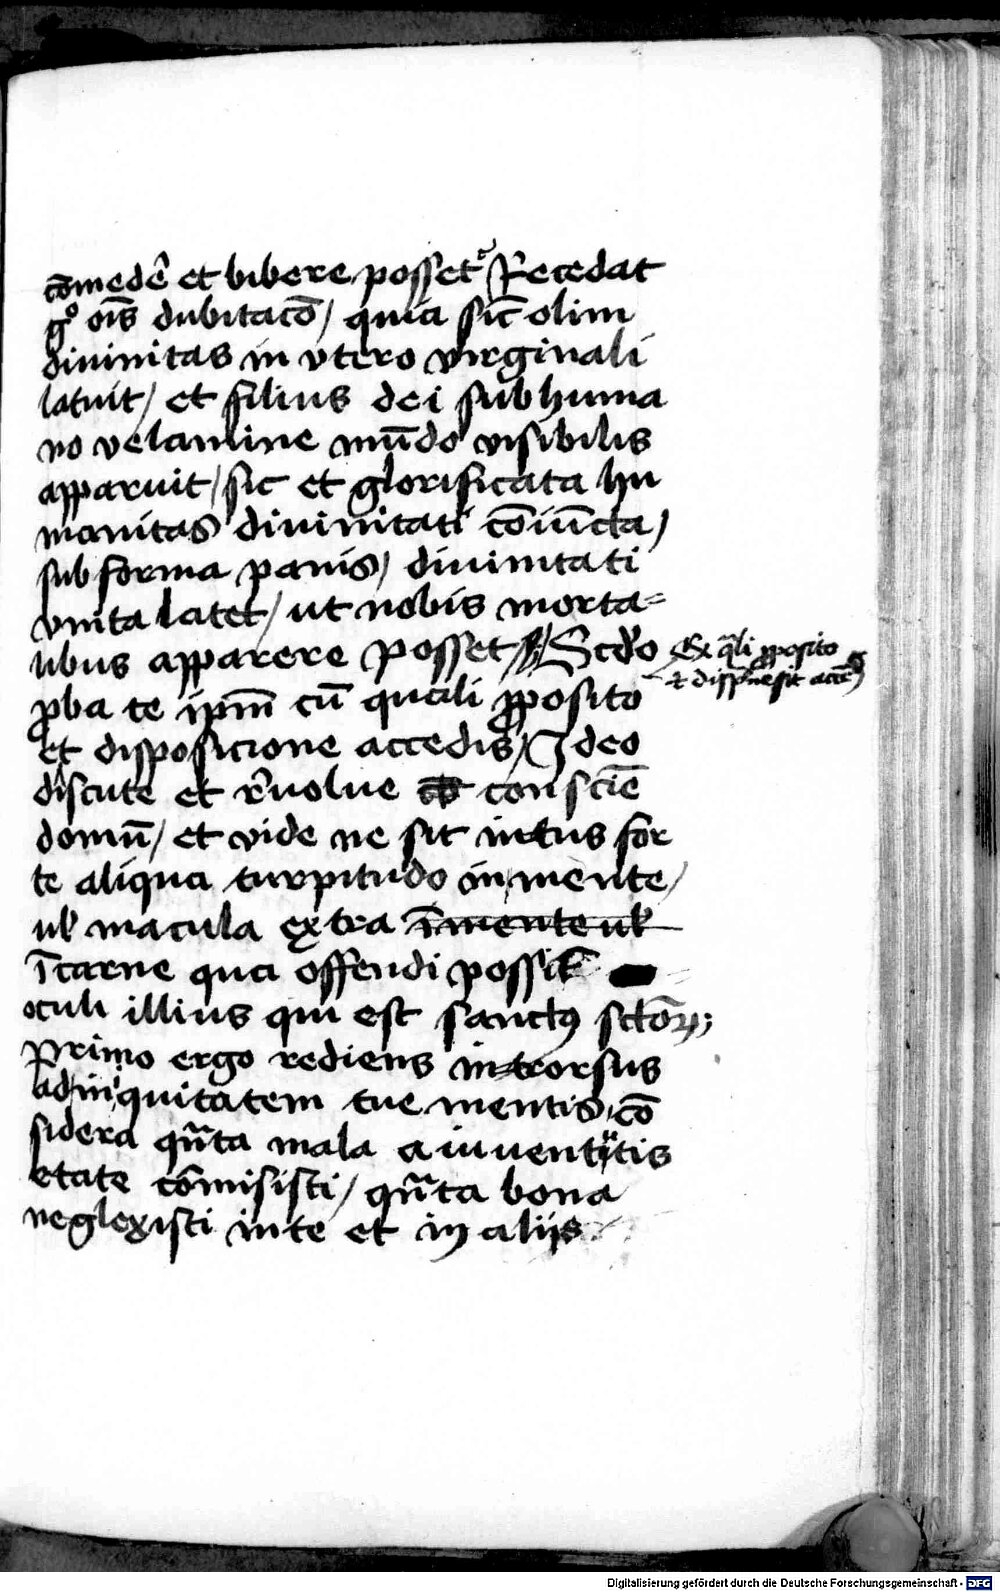 cōmedē et bibere posset Recedat
gº oīs dubitacō / quia sic olim
diuinitas in vtero virginali
latuit / et filius dei sub huma
no velamine mūdo visibilis
apparuit / sic et glorificata hu
manitas diuinitati cōiūcta /
sub forma panis / diuinitati
vnita latet / ut nobis morta=
libus apparere posset // Scdo
Ex qͣli ꝓposito
ꝓba te ipm̄ cū quali ꝓposito
et disposicione accedis / Ideo
discute et reuolue conscīe
domū / et vide ne sit intus for
te aliqua turpitudo in mente /
ul macula extra ī mente ul
ī carne qua offendi possit
oculi illius qui est sanctꝯ sctōꝝ;
Primo ergo rediens in=trorsus
ad iniquitatem tue mentis, cō
sidera qn̄ta mala a iuuentutis
etate cōmisisti / qn̄ta bona
neglexisti in te et in aliis
Digitalisierung gefördert durch die Deutsche Forschungsgemeinschaft - DFG